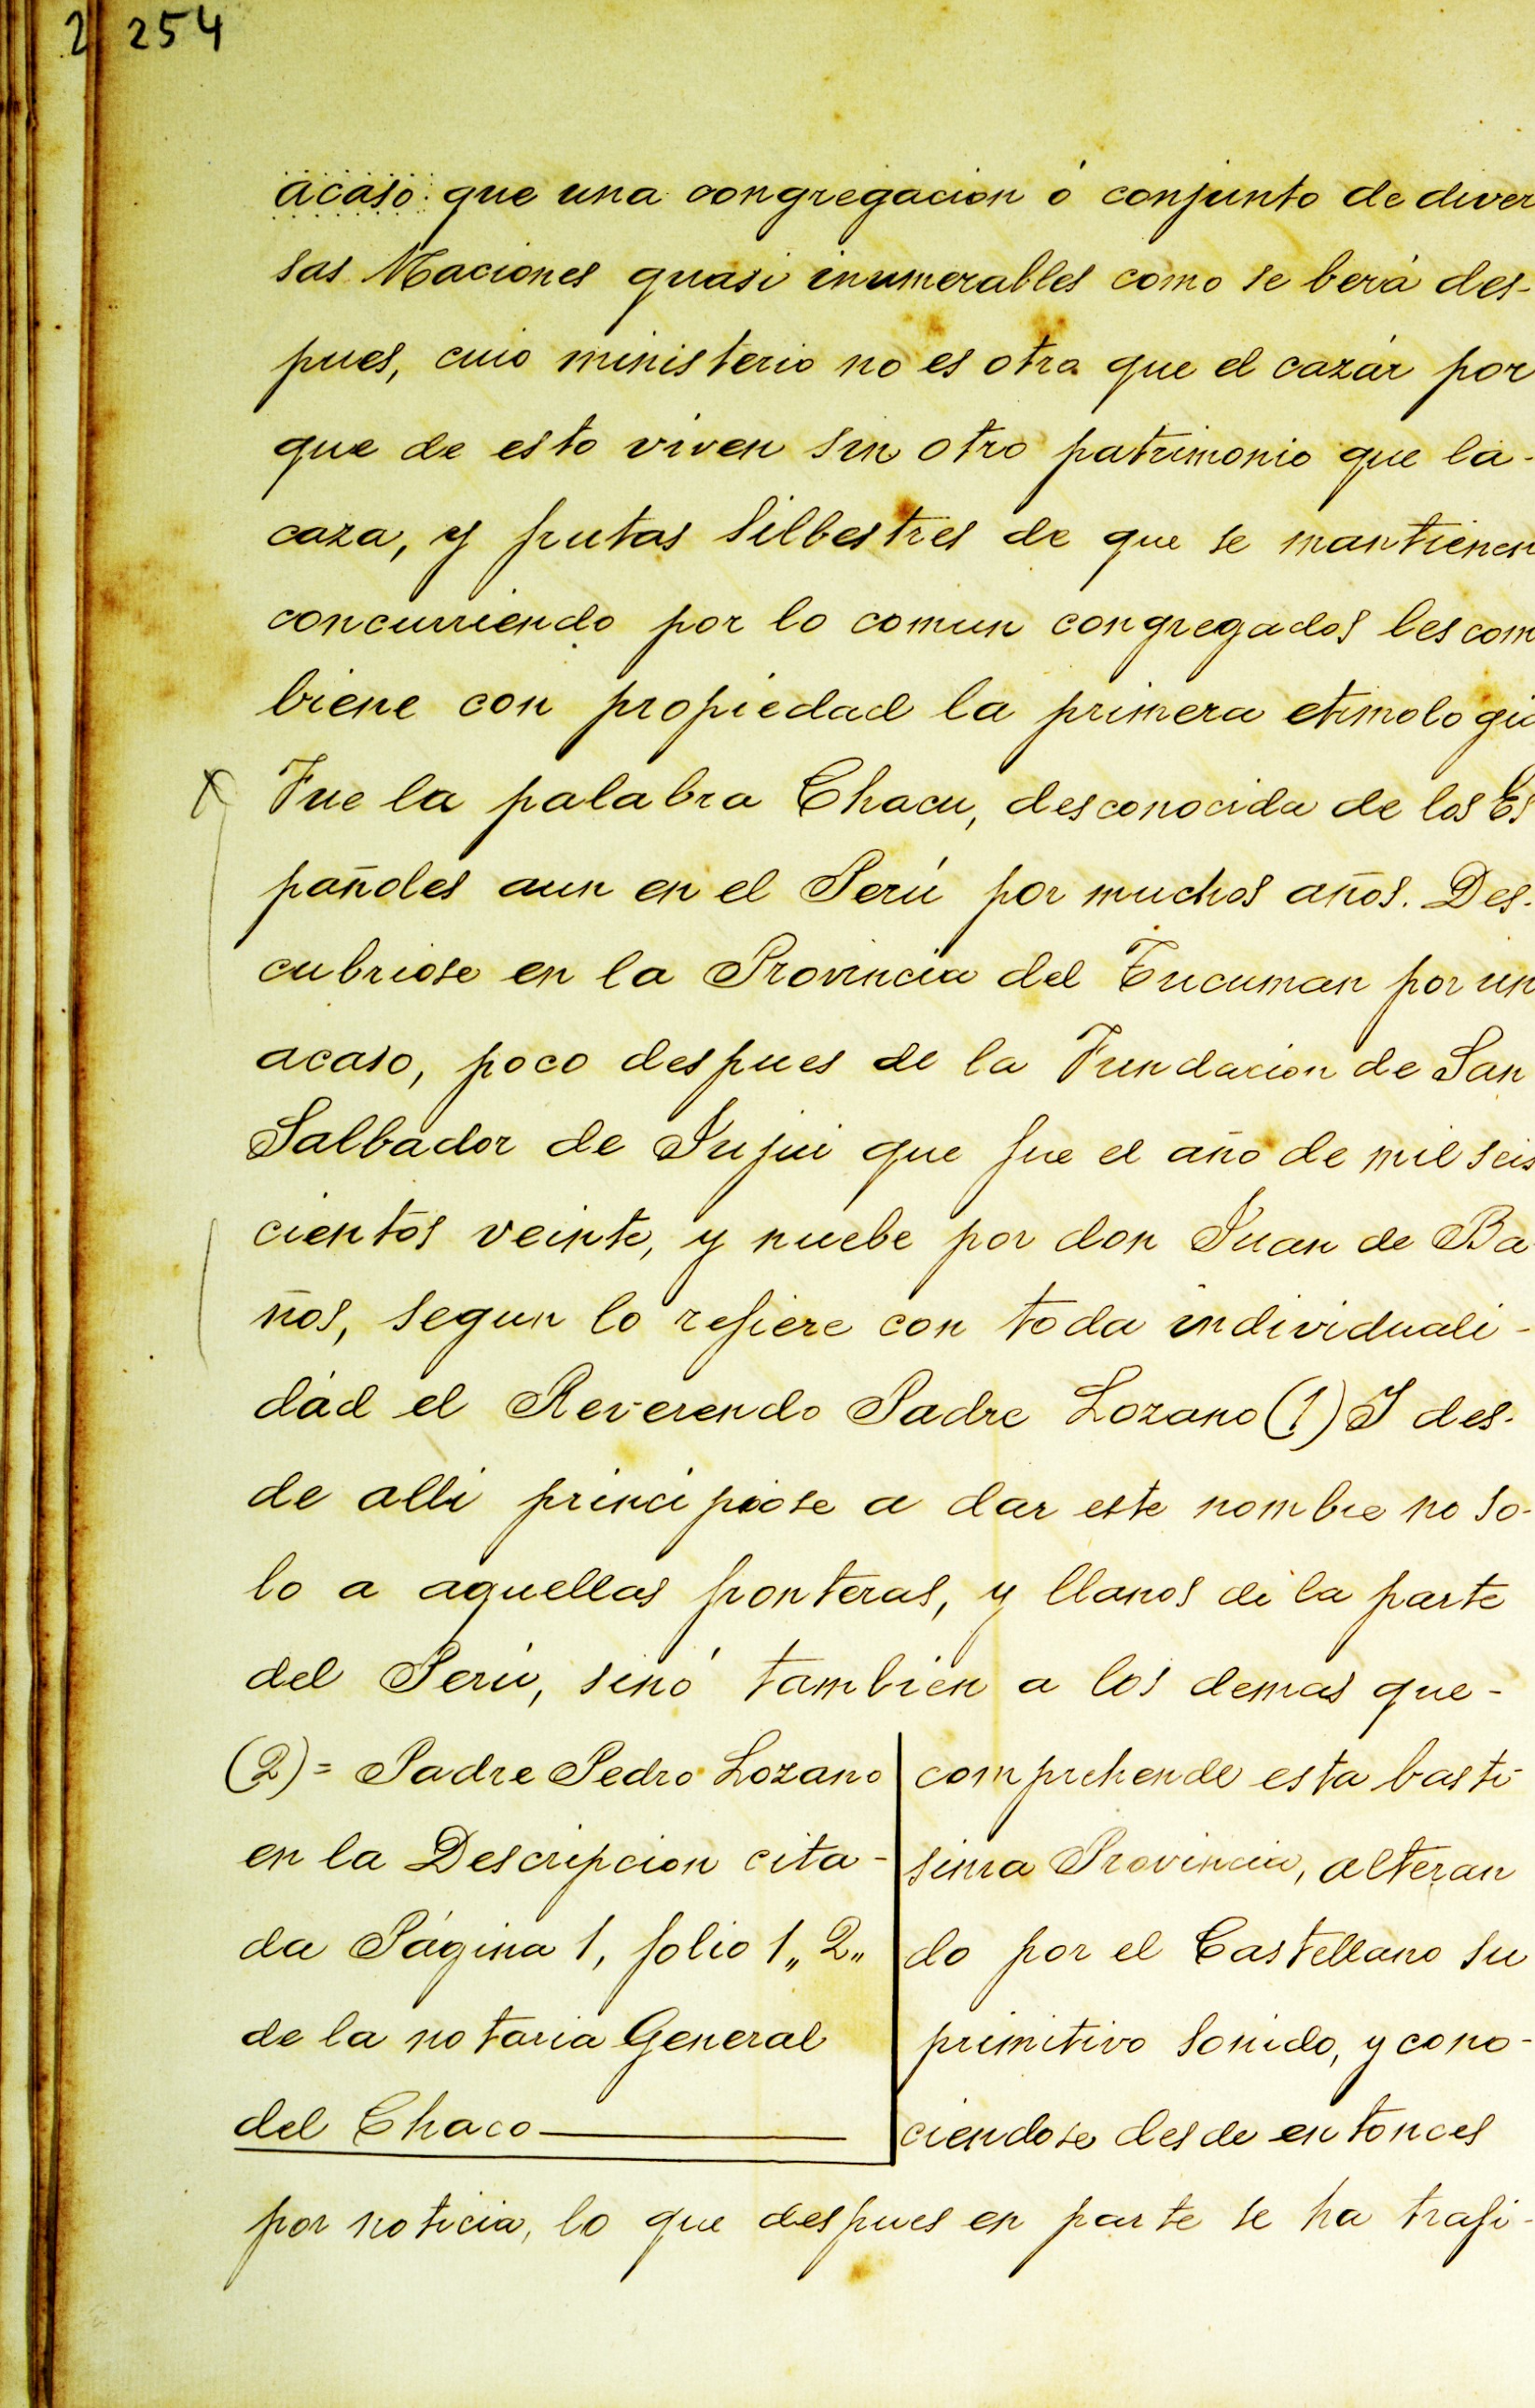 2 254
acaso que una congregacion ó conjunto de diver
sas Naciones quasi inumerables como se berá des-
pues, cuio ministerio no es otra que el cazár por
que de esto viven sin otro patrimonio que la-
caza, y frutas silbestres de que se mantienen
concurriendo por lo comun congregados les com
biene con propiedad la primera etimologia
Fue la palabra Chacu, desconocida de los Es
pañoles aun en el Perú por muchos años. Des-
cubriose en la Provincia del Tucuman por un
acaso, poco despues de la Fundacion de San
Salbador de Jujui que fue el año de mil seis
cientos veinte, y nuebe por don Juan de Ba
ños, segun lo refiere con toda individuali-
dád el Reverendo Padre Lozano (1) I des-
de alli principiose a dar este nombre no so-
lo a aquellas fronteras, y llanos de la parte
del Perú, sinó tambien a los demas que-
comprehende esta basti-
sima Provincia, alteran
do por el Castellano su
primitivo sonido, y cono-
ciendose desde entonces
por noticia, lo que despues en parte se ha trafi-
(2)= Padre Pedro Lozano
en la Descripcion cita-
da Página 1, folio 1,, 2,,
de la notaria General
del Chaco